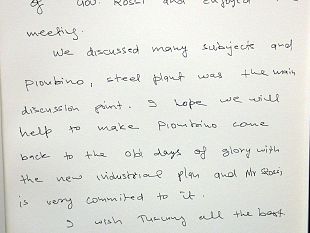 of Gov. Rossi and enjoyed
meeting.
We discussed many subjects and
Piombino, steel plant was the main
discussion point. I hope we will
help to make Piombino come
back to the old days of glory with
the new industrial plan and Mr Rossi
is very commited to it.
I wish Tuscany all the best